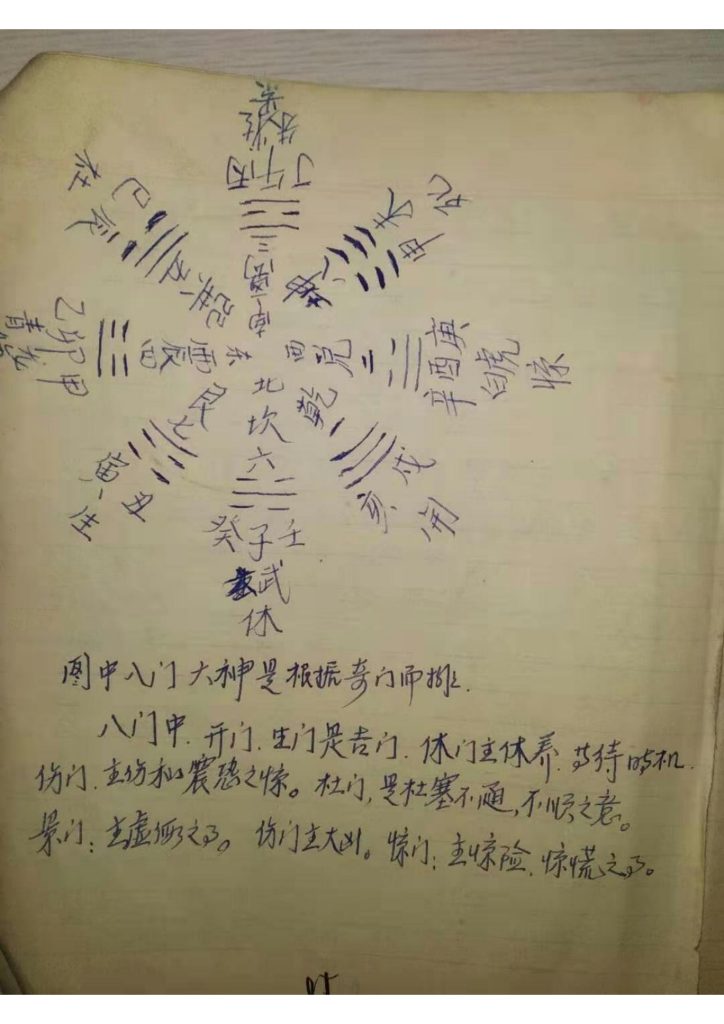 景
朱雀
丁午丙
三
离
南
杜
辰 巳
巽 五
死
申 未
坤 八
青龙
乙卯甲
震四
东
西
兑 二
辛酉庚
白虎
惊
艮七
寅 丑
生
乾 一
戌
亥
开
北
坎
六
癸子壬
武
休
图中八门六神是根据奇门而排.
八门中.开门.生门是吉门.休门主休养.等待时机.
伤门.主伤和震恐之惊。杜门,是杜塞不通,不顺之意。
景门:主虚假之事。伤门主大凶。惊门:主惊险.惊慌之事。